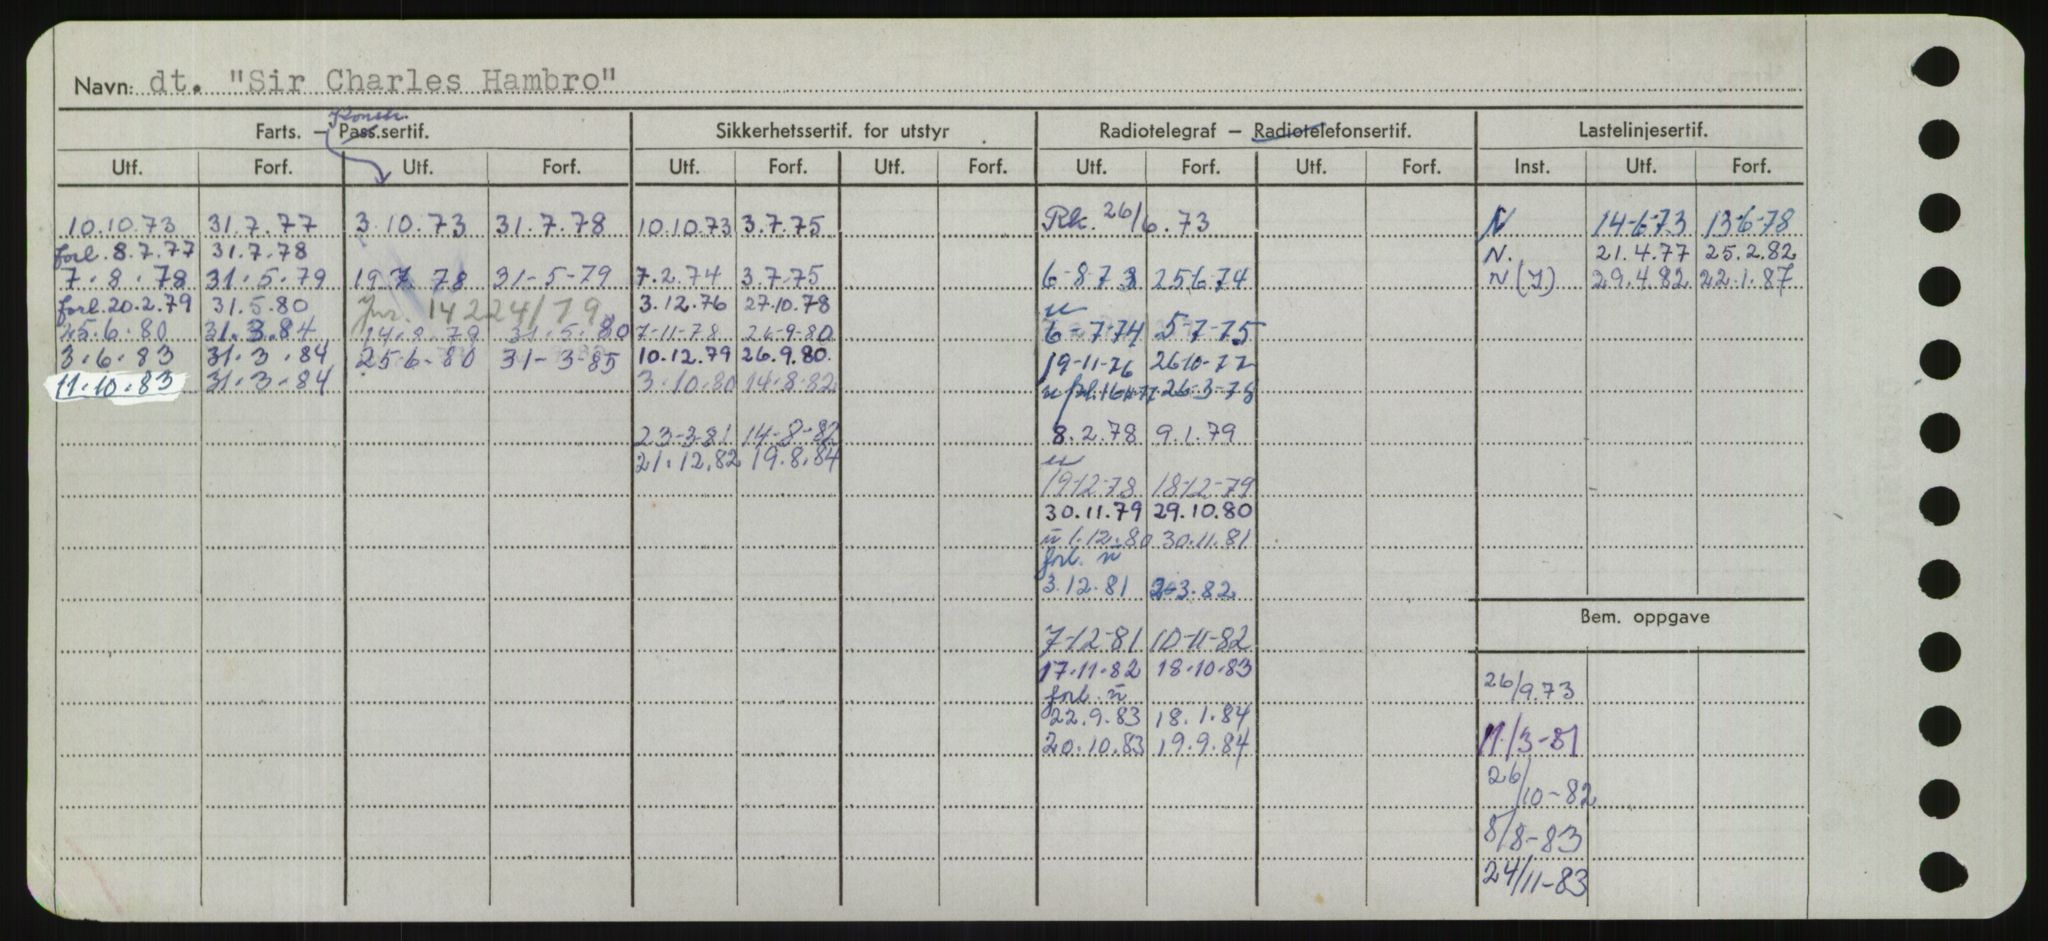 Navn: dt. "Sir Charles Hambro"
Konstr.
Farts. – Pass.sertif. Sikkerhetssertif. for utstyr Radiotelegraf – Radiotelefonsertif. Lastelinjesertif.
Utf. Forf. Utf. Forf. Utf. Forf. Utf. Forf. Utf. Forf. Utf. Forf. Inst. Utf. Forf.
10.10.73 31.7.77 3.10.73 31.7.78 10.10.73 3.7.75 Rk. 26/6.73 N 14-6-73 13-6-78
forl. 8.7.77 31.7.78 N. 21.4.77 25.2.82
7.8.78 31.5.79 19.7.78 31-5-79 7.2.74 3.7.75 6-8-73 25.6.74 N(I) 29.4.82 22.1.87
forl. 20.2.79 31.5.80 Jnr. 14224/79 3.12.76 27.10.78 u
25.6.80 31.3.84 14.8.79 31.5.80 7-11-78 26-9-80 6-7-74 5-7-75
3.6.83 31.3.84 25.6.80 31-3-85 10.12.79 26.9.80 19-11-76 26-10-77
11.10.83 31.3.84 3.10.80 14.8.82 u fl. 26-3-78
23-3-81 14-8-82 8.2.78 9.1.79
21.12.82 19.8.84 u
19-12-78 18-12-79
30.11.79 29.10.80
u 1.12.80 30.11.81
forl. u
3.12.81 3.82
Bem. oppgave
7-12-81 10-11-82
17.11.82 18.10.83
forl. u 26/9.73
22.9.83 18.1.84
20.10.83 19.9.84 11/3-81
26/10-82
8/8-83
24/11-83